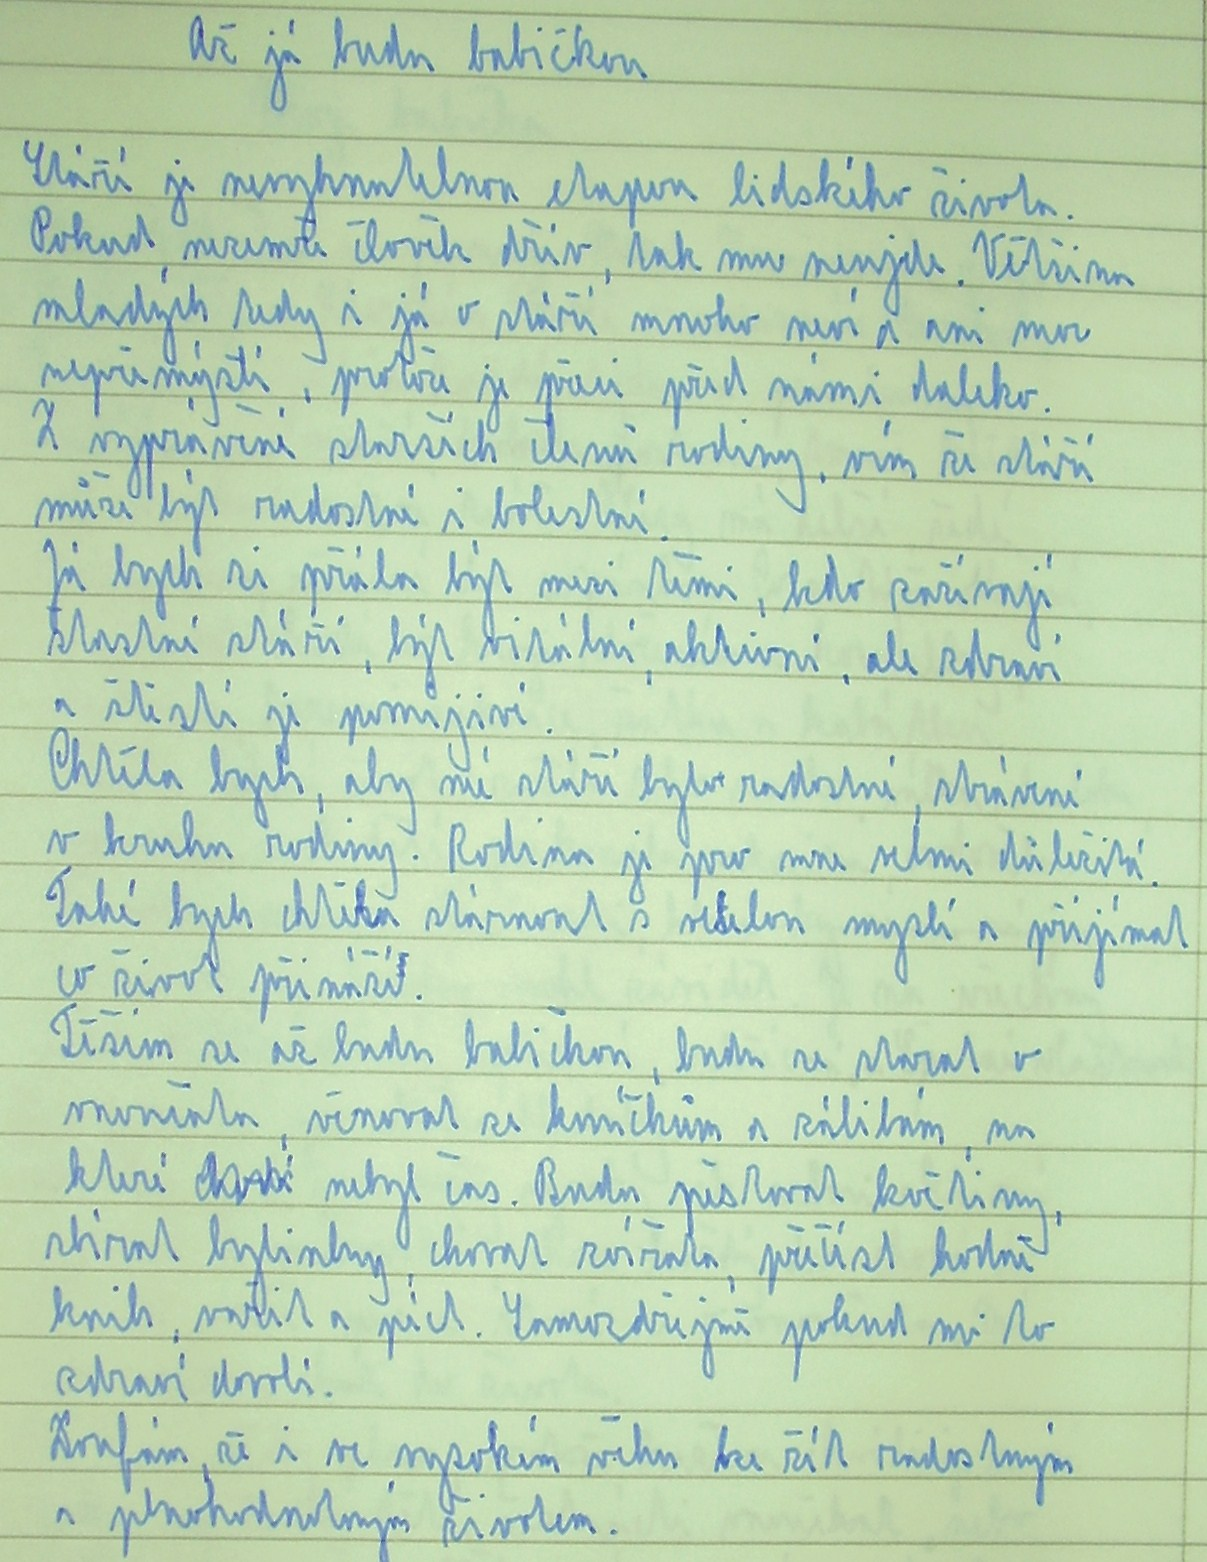 Až já budu babičkou
Stáří je nevyhnutelnou etapou lidského života.
Pokud nezemře člověk dřív, tak mu neujde. Většina
mladých tedy i já o stáří mnoho neví a ani moc
nepřemýšlí, protože je přeci před námi daleko.
Z vyprávění starších členů rodiny, vím že stáří
může být radostné i bolestné.
Já bych si přála být mezi těmi, kdo zažívají
šťastné stáří, být vitální, aktivní, ale zdraví
a štěstí je pomíjivé.
Chtěla bych, aby mé stáří bylo radostné, strávené
v kruhu rodiny. Rodina je pro mne velmi důležitá.
Také bych chtěla stárnout s veselou myslí a přijímat
co život přináší.
Těším se až budu babičkou, budu se starat o
vnoučata, věnovat se koníčkům a zálibám, na
které nebyl čas. Budu pěstovat květiny,
sbírat bylinky, chovat zvířata, přečíst hodně
knih, vařit a péct. Samozdřejmě pokud mi to
zdraví dovolí.
Doufám, že i ve vysokém věku lze žít radostným
a plnohodnotným životem.